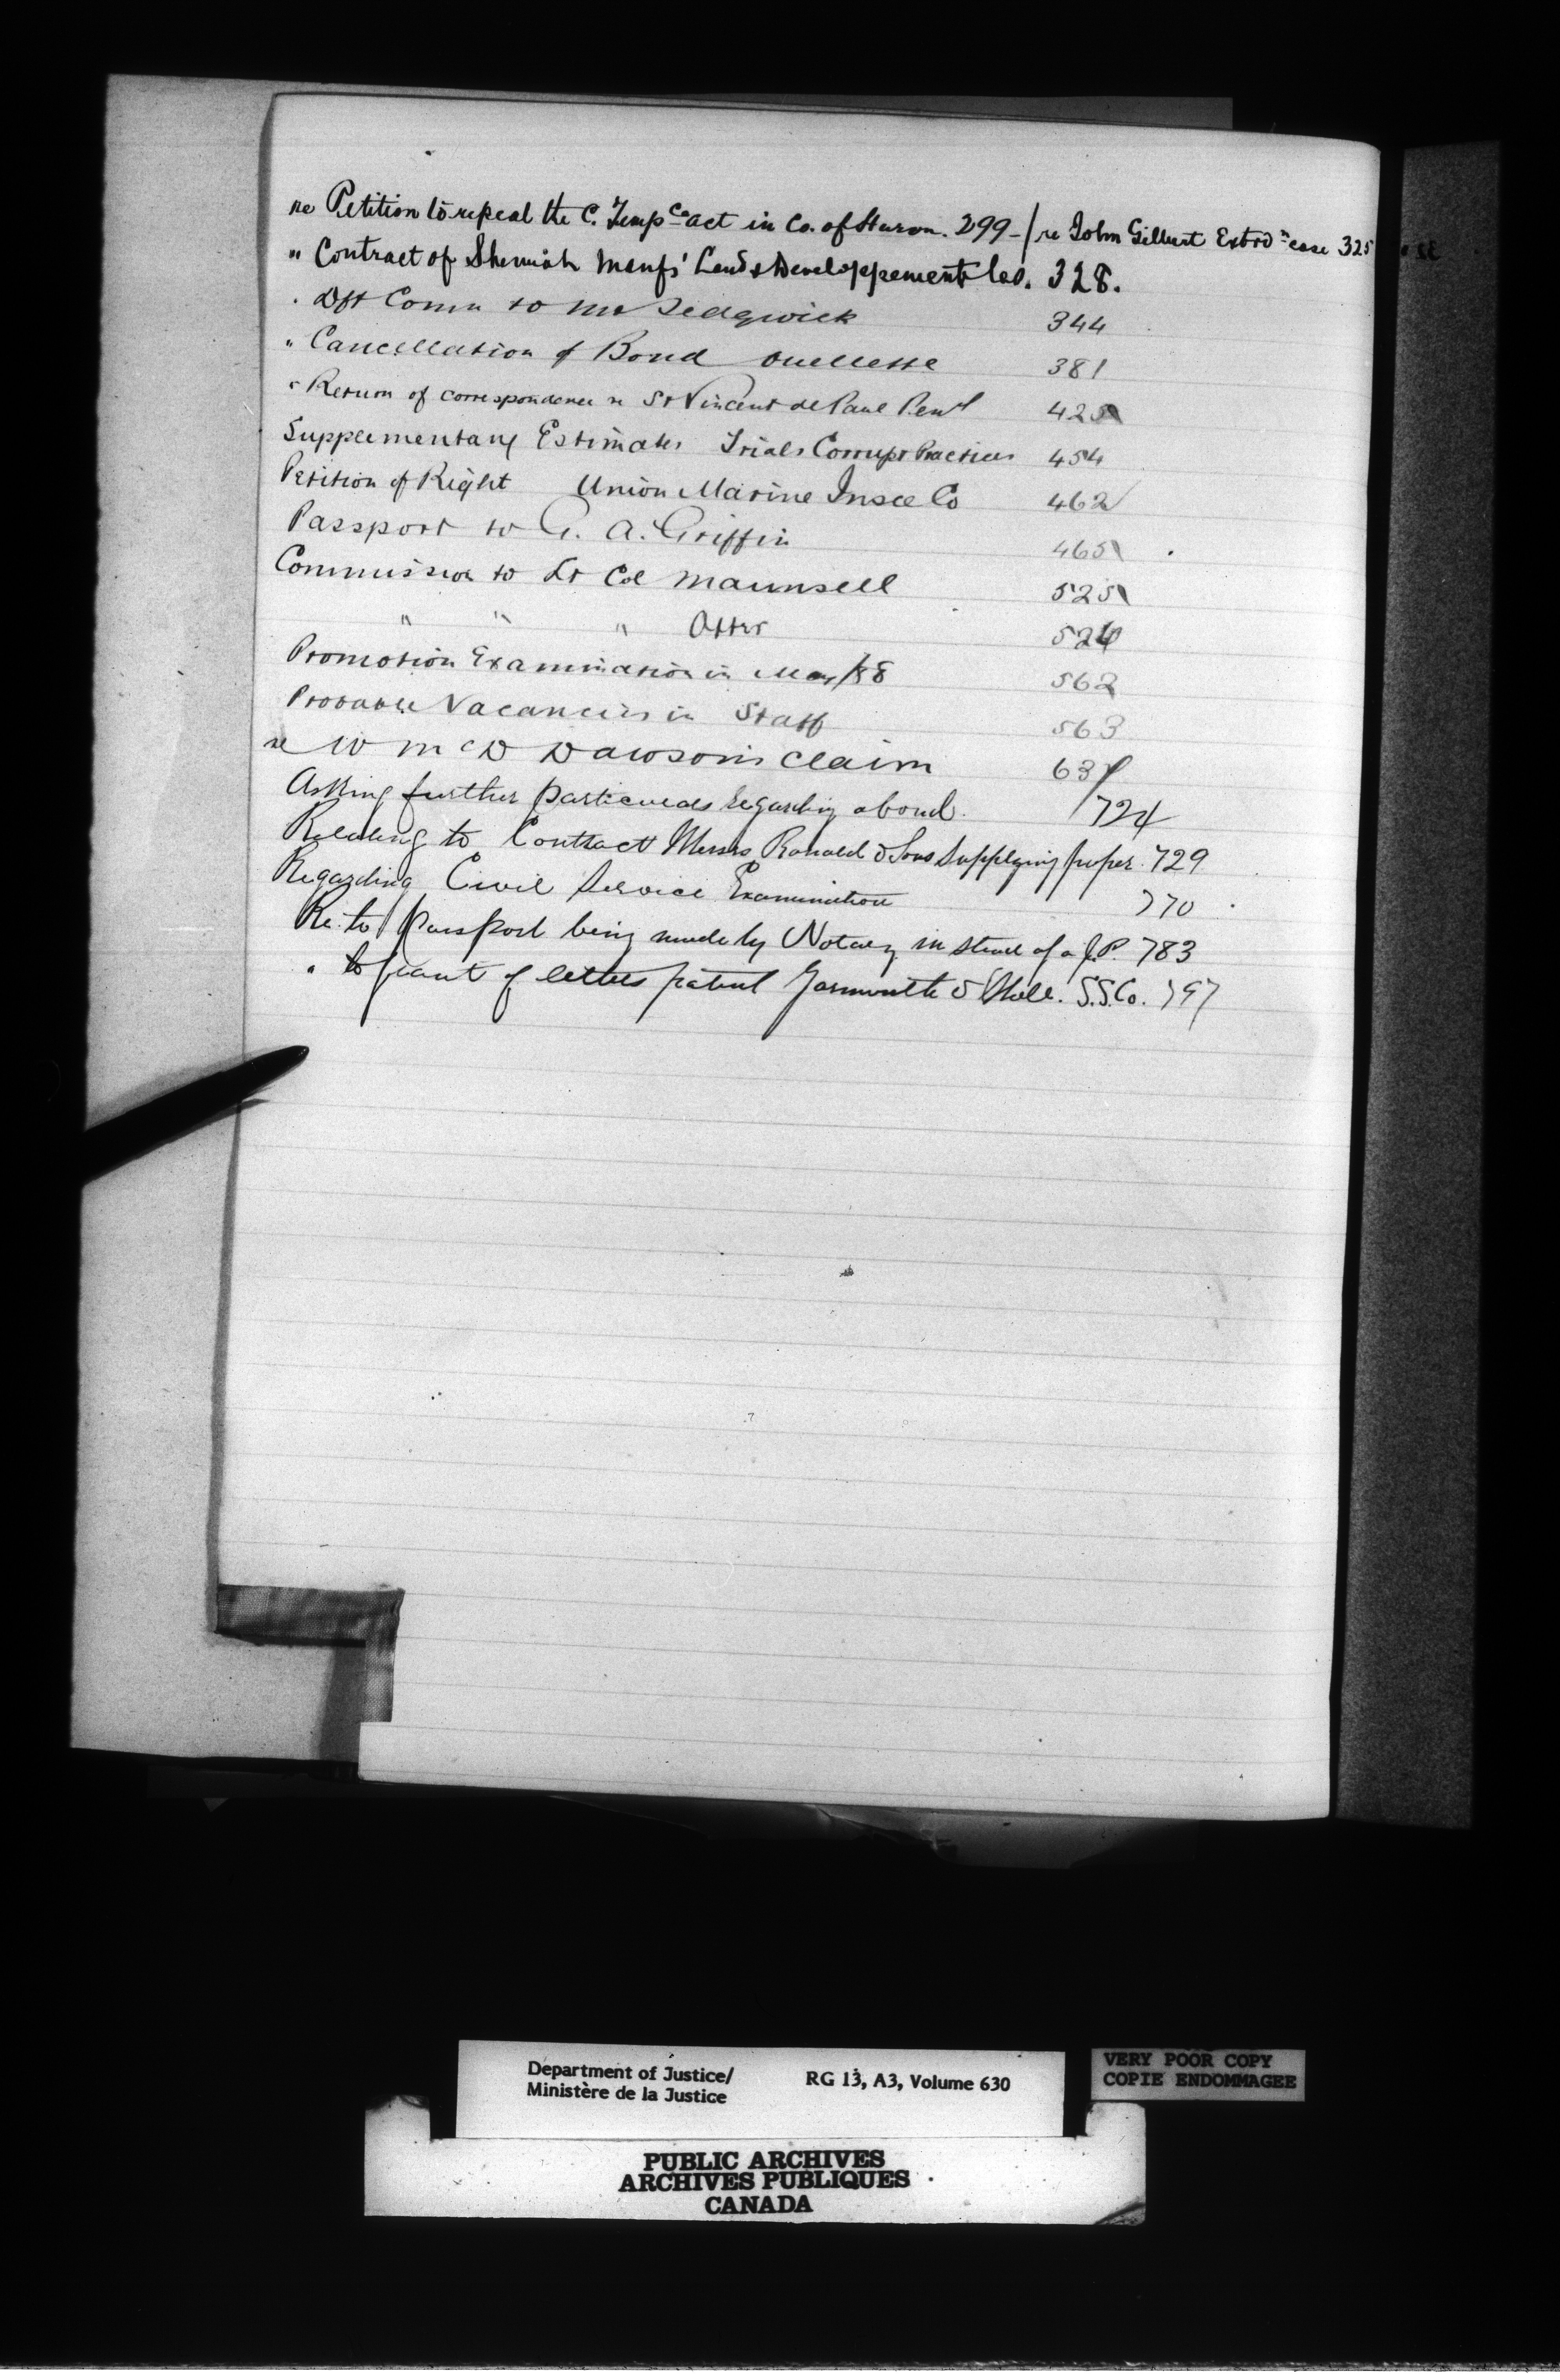 re Petition to repeal the C. Temp ce act in Co. of Huron. 299 - / re John Gilbert Extrd n case 325
" Contract of Manfs' Land & Developpement Co. 328.
. Dft Comn to Mr Sedgwick 344
" Cancellation of Bond Ouellette 381
" Return of correspondence re St Vincent de Paul Pen'l 425
Supplementary Estimates Trials Corrupt Practices 454
Petition of Right Union Marine Insce Co 462
Passport to G. A. Griffin 465
Commission to Lt Col Maunsell 525
" " " Otter 526
Promotion Examination in May/88 562
Probable Vacancies in Staff 563
re W McD Dawson's claim 637
Asking further particulars regarding a bond. 724
Relating to Contract Messrs Ronald & Sons Supplying paper. 729
Regarding Civil Service Examination 770
Re. to passport being made by Notary in stead of a J.P. 783
" to grant of letters patent Yarmouth & S.S. Co. 797
Department of Justice/
Ministère de la Justice
RG 13, A3, Volume 630
VERY POOR COPY
COPIE ENDOMMAGEE
PUBLIC ARCHIVES
ARCHIVES PUBLIQUES
CANADA